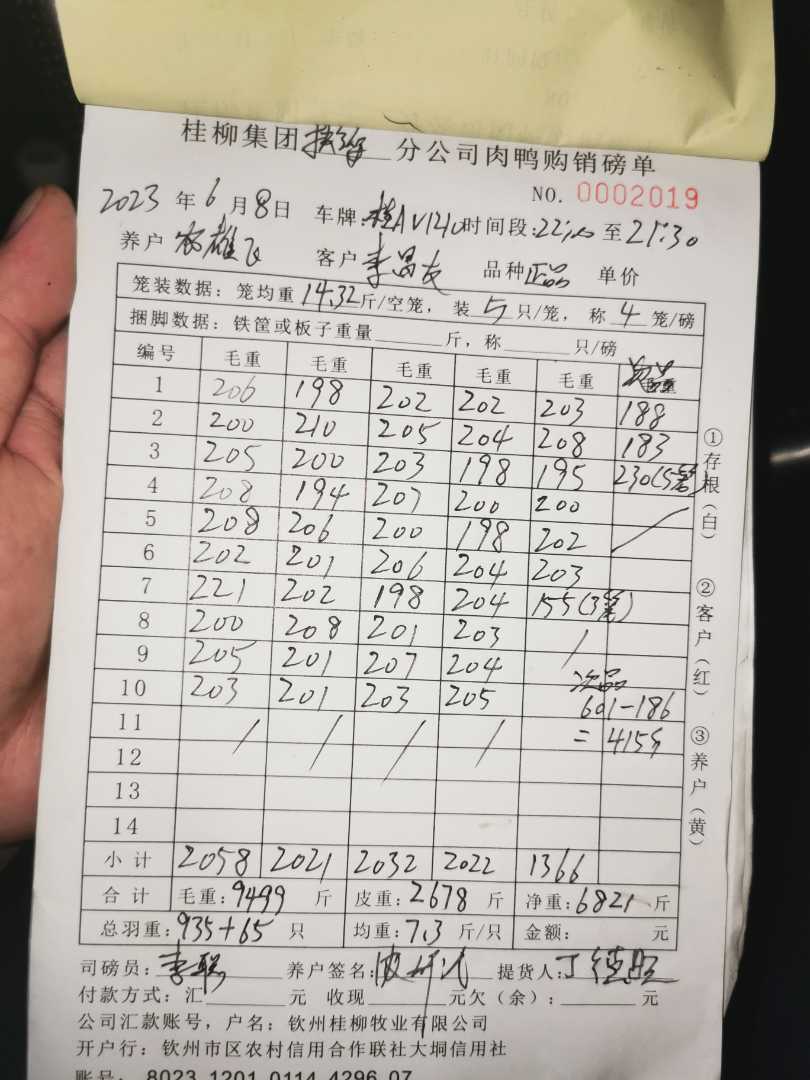 桂柳集团 分公司肉鸭购销磅单
NO. 0002019
2023 年 6 月 8 日 车牌: 桂AV1210 时间段: 22:00 至 21:30
养户 客户 李昌友 品种 正品 单价
笼装数据: 笼均重 14.32 斤/空笼, 装 5 只/笼, 称 4 笼/磅
捆脚数据: 铁筐或板子重量 斤, 称 只/磅
编号 毛重 毛重 毛重 毛重 毛重 次品
1 206 198 202 202 203 188
2 200 210 205 204 208 183
3 205 200 203 198 195 230(5笼)
4 208 194 207 200 200
5 208 206 200 198 202 /
6 202 201 206 204 203
7 221 202 198 204 155(3笼)
8 200 208 201 203 /
9 205 201 207 204
10 203 201 203 205 次品 601-186
11 / / / / = 415斤
12
13
14
小计 2058 2021 2032 2022 1366
合计 毛重: 9499 斤 皮重: 2678 斤 净重: 6821 斤
总羽重: 935+65 只 均重: 7.3 斤/只 金额: 元
司磅员: 李聪 养户签名: 提货人:
付款方式: 汇 元 收现 元欠(余): 元
公司汇款账号, 户名: 钦州桂柳牧业有限公司
开户行: 钦州市区农村信用合作联社大垌信用社
账号: 8023 1201 0114 4296 07
①存根(白)
②客户(红)
③养户(黄)